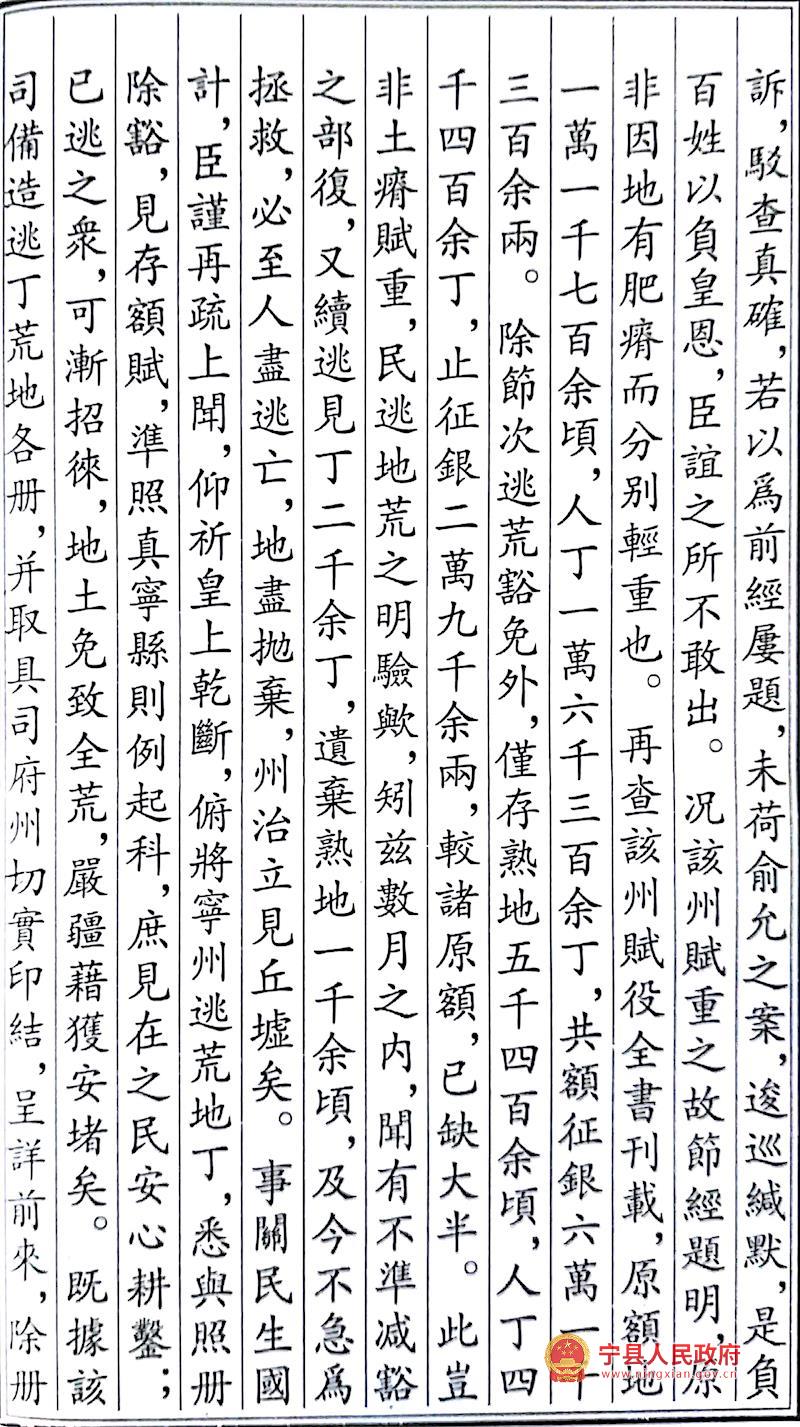 訴，駁查真確，若以爲前經屢題，未荷俞允之案，逡巡緘默，是負
百姓以負皇恩，臣誼之所不敢出。况該州賦重之故節經題明，原
非因地有肥瘠而分别輕重也。再查該州賦役全書刊載，原額地
一萬一千七百余頃，人丁一萬六千三百余丁，共額征銀六萬一千
三百余兩。除節次逃荒豁免外，僅存熟地五千四百余頃，人丁四
千四百余丁，止征銀二萬九千余兩，較諸原額，已缺大半。此豈
非土瘠賦重，民逃地荒之明驗歟，矧兹數月之内，聞有不準减豁
之部復，又續逃見丁二千余丁，遺棄熟地一千余頃，及今不急爲
拯救，必至人盡逃亡，地盡抛棄，州治立見丘墟矣。事關民生國
計，臣謹再疏上聞，仰祈皇上乾斷，俯將寧州逃荒地丁，悉與照册
除豁，見存額賦，準照真寧縣則例起科，庶見在之民安心耕鑿；
已逃之衆，可漸招徠，地土免致全荒，嚴疆藉獲安堵矣。既據該
司備造逃丁荒地各册，并取具司府州切實印結，呈詳前來，除册
宁县人民政府
www.ningxian.gov.cn